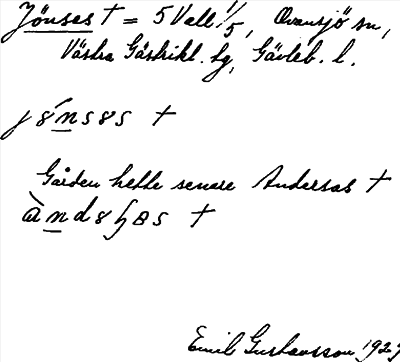 Jönses † = 5 Vall 1/5, Ovansjö sn,
Västra Gästrikl. tg, Gävleb. l.
Gården hette senare Andersas †
Emil Gustavsson 1929